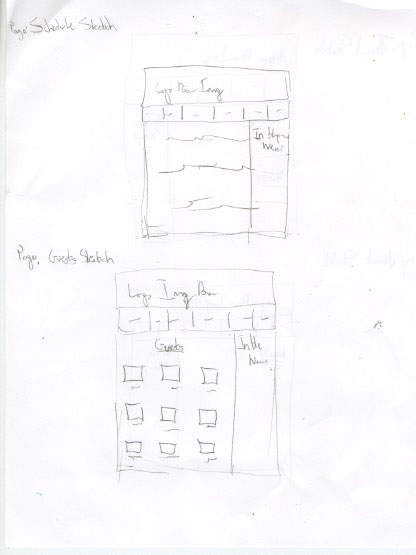 Page: Schedule Sketch
Logo Ban Img
In the
News
Page: Guests Sketch
Logo Img Ban
Guests
In the
News